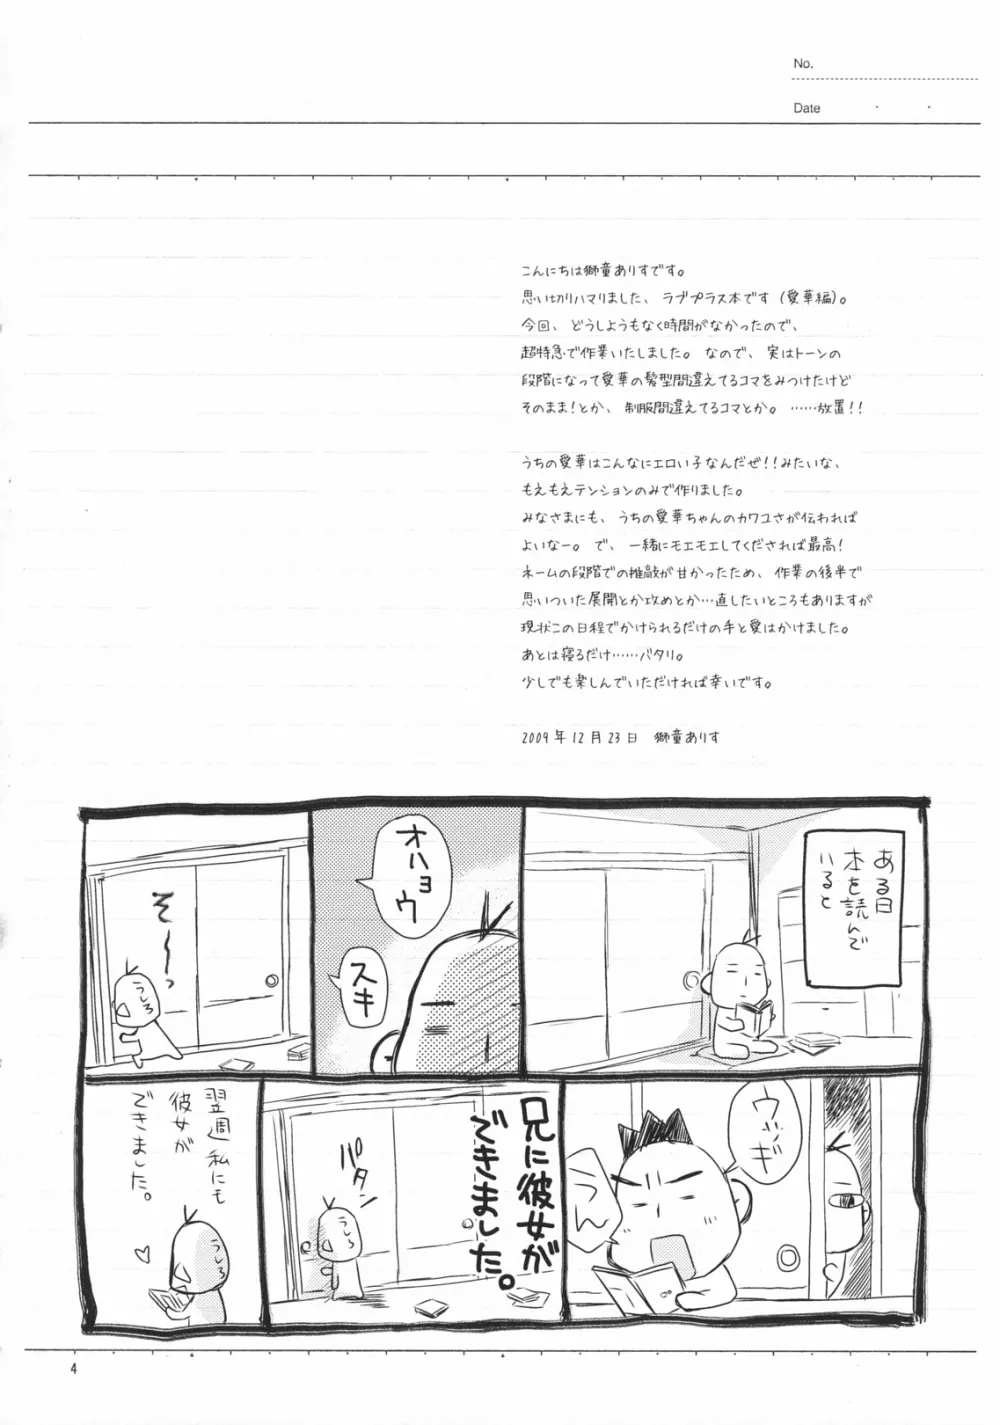 No.
Date
こんにちは獅童ありすです。
思い切りハマりました、ラブプラス本です(愛華編)。
今回、どうしようもなく時間がなかったので、
超特急で作業いたしました。なので、実はトーンの
段階になって愛華の髪型間違えてるコマをみつけたけど
そのまま!とか、制服間違えてるコマとか。……放置!!
うちの愛華はこんなにエロい子なんだぜ!!みたいな、
もえもえテンションのみで作りました。
みなさまにも、うちの愛華ちゃんのカワユさが伝われば
よいなー。で、一緒にモエモエしてくだされば最高!
ネームの段階での推敲が甘かったため、作業の後半で
思いついた展開とか攻めとか…直したいところもありますが
現状この日程でかけられるだけの手と愛はかけました。
あとは寝るだけ……バタリ。
少しでも楽しんでいただければ幸いです。
2009年12月23日 獅童ありす
ある日
本を読んで
いると
オハョウ
スキ
そ～っ
うしろ
ウッギ
うん
兄に彼女が
できました。
パタン
うしろ
翌週私にも
彼女が
できました。
うしろ
4